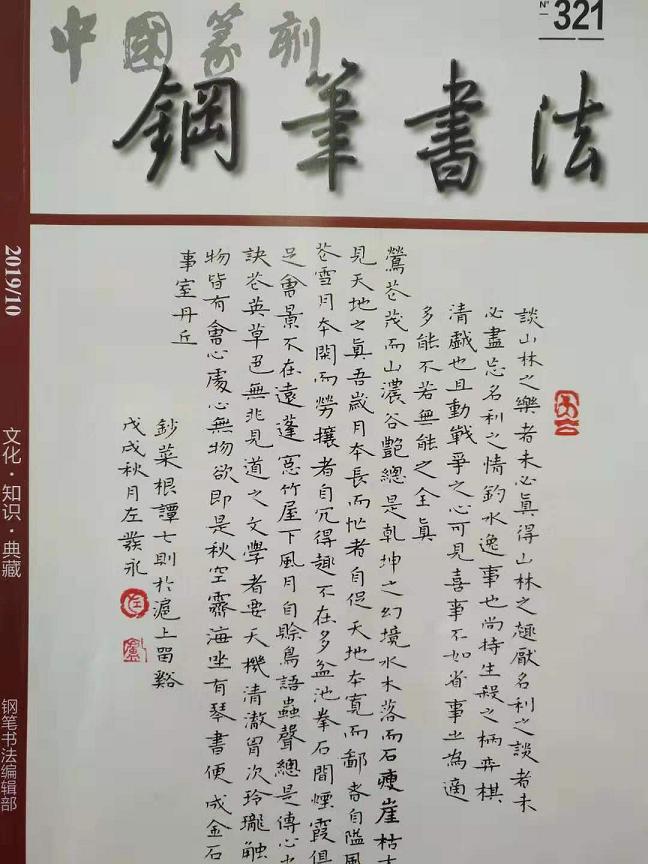 中國篆刻
Nº 321
鋼筆書法
2019/10
文化·知识·典藏
钢笔书法编辑部
談山林之樂者未必眞得山林之趣厭名利之談者未
必盡忘名利之情釣水逸事也尚持生殺之柄弈棋
清戲也且動戰爭之心可見喜事不如省事之為適
多能不若無能之全眞
鶯花茂而山濃谷艷總是乾坤之幻境水木落而石瘦崖枯
見天地之眞吾歲月本長而忙者自促天地本寬而鄙者自隘風
花雪月本閒而勞攘者自冗得趣不在多盆池拳石間煙霞俱
足會景不在遠蓬窓竹屋下風月自賒鳥語蟲聲總是傳心
訣花英草色無非見道之文學者要天機清澈胷次玲瓏觸
物皆有會心處心無物欲即是秋空霽海坐有琴書便成金石
事室丹丘
鈔菜根譚七則於滬上留谿
戊戌秋月左發永